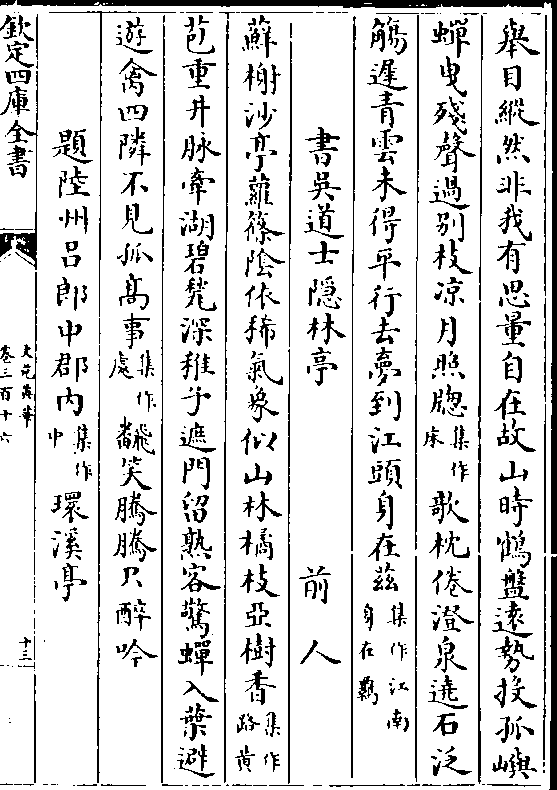 舉目縱然非我有思量自在故山時鶴盤遠勢投孤嶼
蟬曳殘聲過別枝凉月照牎集作床欹枕倦澄泉遶石泛
觴遲青雲未得平行去夢到江頭身在兹集作江南身在羈
書吳道士隠林亭 前人
蘇榭沙亭蘿篠陰依稀氣象似山林橘枝亞樹香集作路黄
苞重井脉牽湖碧甃深稚子遮門留熟客驚蟬入葉避
遊禽四隣不見孤髙事集作處飛翥笑騰騰只醉吟
題陸州吕郎中郡内集作中環溪亭
欽定四庫全書
文苑英華
卷三百十六
十二